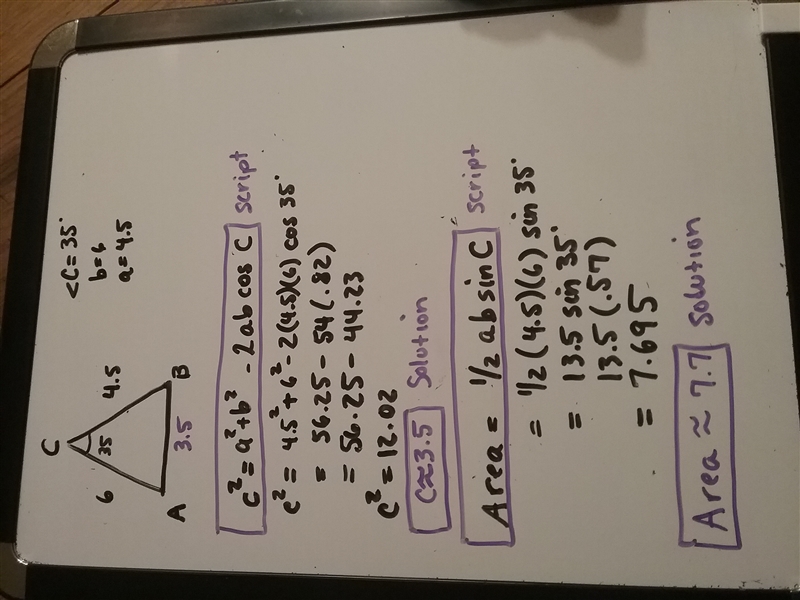 C
<C=35°
6
35
4.5
b=6
a=4.5
A
3.5
B
c² = a²+b² - 2ab cos C script
c² = 4.5²+6²-2(4.5)(6) cos 35°
= 56.25 - 54(.82)
= 56.25 - 44.23
c² = 12.02
C≈3.5 Solution
Area = 1/2 ab sin C script
= 1/2(4.5)(6) sin 35°
= 13.5 sin 35°
13.5(.57)
= 7.695
Area ≈ 7.7 Solution